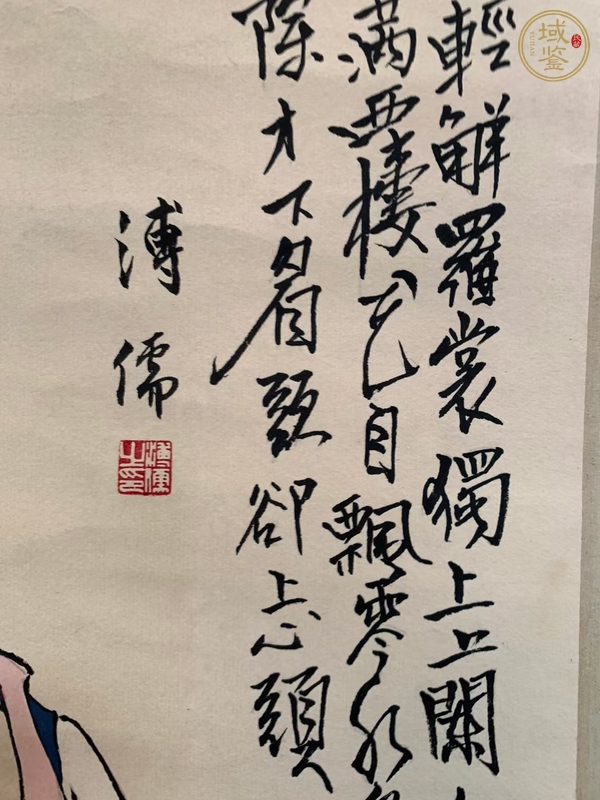 輕解羅裳獨上蘭
滿西樓花自飄零水
除才下眉頭卻上心頭
溥儒
溥儒之印
域鉴